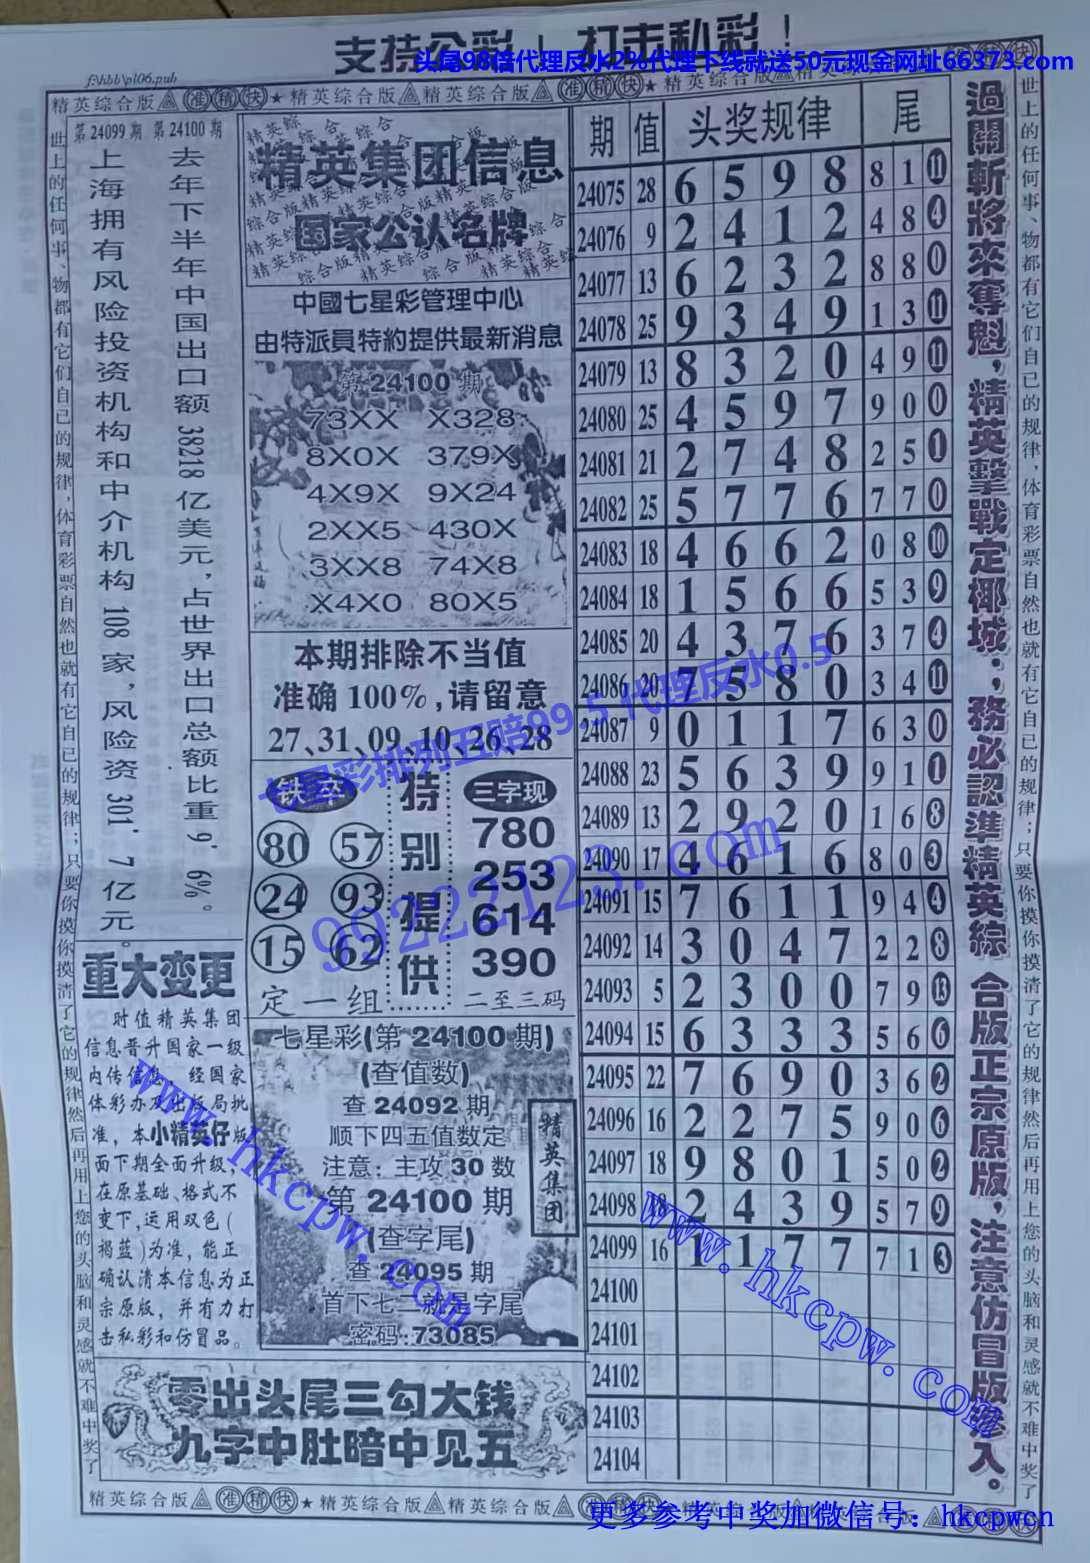 支持公彩！打击私彩！
头尾98倍代理反水2%代理下线就送50元现金网址66373.com
f:\hbb\pl06.pub
精英综合版 准精快 ★精英综合版 精英综合版 准精快 ★精英综合版
世上的任何事、物都有它们自己的规律，体育彩票自然也就有它自己的规律；只要你摸你摸清了它的规律然后再用上您的头脑和灵感就不难中奖了
第24099期 第24100期
去年下半年中国出口额38218亿美元，占世界出口总额比重9'6%。
上海拥有风险投资机构和中介机构108家，风险资301'7亿元。
重大变更
时值精英集团
信息晋升国家一级
内传信息 经国家
体彩办及出版局批
准，本小精英仔版
面下期全面升级，
在原基础、格式不
变下,运用双色(
褐蓝)为准，能正
确认清本信息为正
宗原版，并有力打
击私彩和仿冒品。
精英集团信息
国家公认名牌
中國七星彩管理中心
由特派員特約提供最新消息
第24100期
73XX X328
8X0X 379X
4X9X 9X24
2XX5 430X
3XX8 74X8
X4X0 80X5
本期排除不当值
准确100%,请留意
27、31、09、10、26、28
七星彩排列五赔99.5 代理反水0.5
铁卒
80 57
24 93
15 62
定一组
特别提供
三字现
780
253
614
390
二至三码
99222123.com
七星彩(第24100期)
(查值数)
查24092期
顺下四五值数定
注意：主攻30数
第24100期
(查字尾)
查24095期
首下七二就是字尾
密码:73085
精英集团
零出头尾三勾大钱
九字中肚暗中见五
期 值 头奖规律 尾
24075 28 6 5 9 8 8 1 11
24076 9 2 4 1 2 4 8 4
24077 13 6 2 3 2 8 8 0
24078 25 9 3 4 9 1 3 11
24079 13 8 3 2 0 4 9 11
24080 25 4 5 9 7 9 0 0
24081 21 2 7 4 8 2 5 1
24082 25 5 7 7 6 7 7 0
24083 18 4 6 6 2 0 8 10
24084 18 1 5 6 6 5 3 9
24085 20 4 3 7 6 3 7 4
24086 20 7 5 8 0 3 4 11
24087 9 0 1 1 7 6 3 0
24088 23 5 6 3 9 9 1 1
24089 13 2 9 2 0 1 6 8
24090 17 4 6 1 6 8 0 3
24091 15 7 6 1 1 9 4 4
24092 14 3 0 4 7 2 2 8
24093 5 2 3 0 0 7 9 13
24094 15 6 3 3 3 5 6 6
24095 22 7 6 9 0 3 6 2
24096 16 2 2 7 5 9 0 6
24097 18 9 8 0 1 5 0 2
24098 18 2 4 3 9 5 7 9
24099 16 1 1 7 7 7 1 3
24100
24101
24102
24103
24104
過關斬將來奪魁，精英擊戰定椰城；務必認準精英綜 合版正宗原版，注意仿冒版掺入。
世上的任何事、物都有它们自己的规律，体育彩票自然也就有它自己的规律；只要你摸你摸清了它的规律然后再用上您的头脑和灵感就不难中奖了
www.hkcpw.com
www.hkcpw.com
精英综合版 准精快 ★精英综合版 精英综合版 准精快 ★精英综合版 精英综合版
更多参考中奖加微信号：hkcpwcn